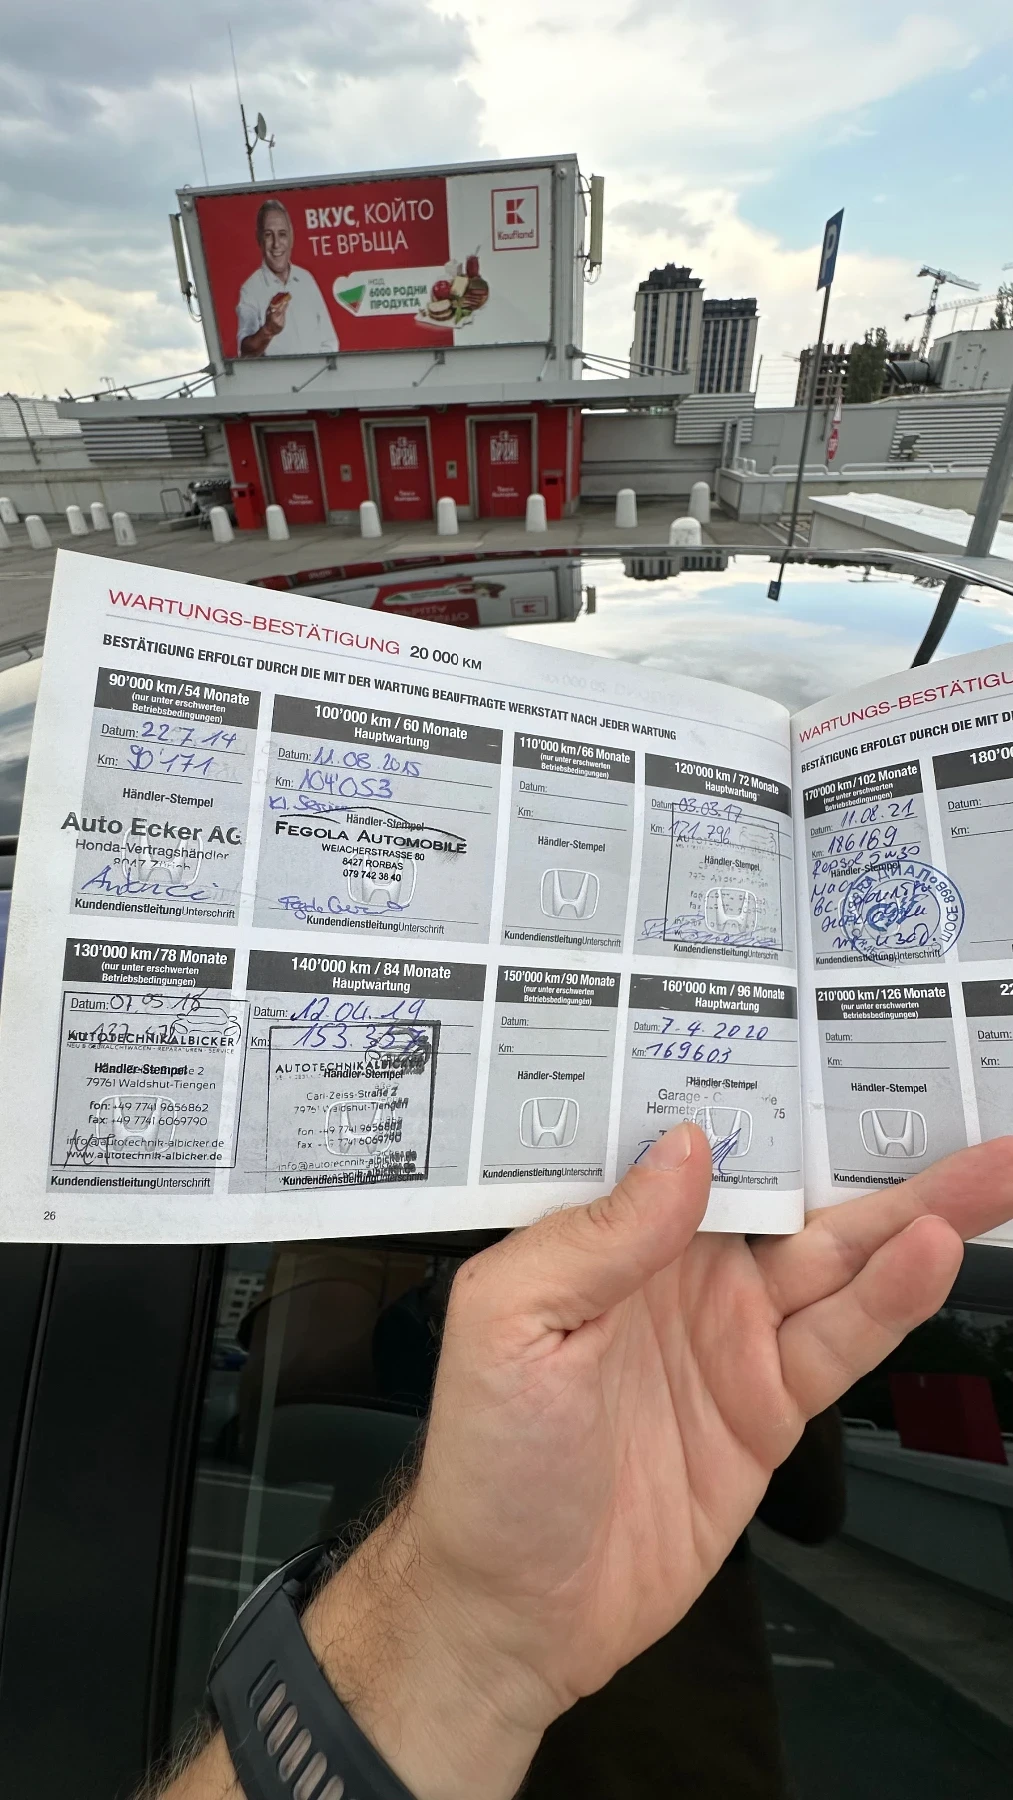 ВКУС, КОЙТО
ТЕ ВРЪЩА
НАД
6000 РОДНИ
ПРОДУКТА
Kaufland
P
WARTUNGS-BESTÄTIGUNG 20 000 KM
BESTÄTIGUNG ERFOLGT DURCH DIE MIT DER WARTUNG BEAUFTRAGTE WERKSTATT NACH JEDER WARTUNG
90'000 km/54 Monate
(nur unter erschwerten
Betriebsbedingungen)
Datum: 22.7.14
Km: 90'171
Händler-Stempel
Auto Ecker AG
Honda-Vertragshändler
100'000 km / 60 Monate
Hauptwartung
Datum: 11.08.2015
Km: 104'053
Kl. Service
Händler-Stempel
FEGOLA AUTOMOBILE
WEIACHERSTRASSE 80
8427 RORBAS
079 742 38 40
KundendienstleitungUnterschrift
110'000 km/66 Monate
(nur unter erschwerten
Betriebsbedingungen)
Datum:
Km:
Händler-Stempel
KundendienstleitungUnterschrift
120'000 km / 72 Monate
Hauptwartung
Datum: 03.03.17
Km: 121.796
Händler-Stempel
KundendienstleitungUnterschrift
130'000 km/78 Monate
(nur unter erschwerten
Betriebsbedingungen)
Datum:
AUTOTECHNIK ALBICKER
79761 Waldshut-Tiengen
fon: +49 7741 9656862
fax: +49 7741 6069790
info@autotechnik-albicker.de
www.autotechnik-albicker.de
KundendienstleitungUnterschrift
140'000 km / 84 Monate
Hauptwartung
Datum: 12.04.19
Km: 153.357
AUTOTECHNIK ALBICKER
Händler-Stempel
Carl-Zeiss-Straße 2
79761 Waldshut-Tiengen
fon +49 7741 9656862
fax +49 7741 6069790
info@autotechnik-albicker.de
KundendienstleitungUnterschrift
150'000 km/90 Monate
(nur unter erschwerten
Betriebsbedingungen)
Datum:
Km:
Händler-Stempel
KundendienstleitungUnterschrift
160'000 km / 96 Monate
Hauptwartung
Datum: 7.4.2020
Km: 169603
Händler-Stempel
Garage
75
26
WARTUNGS-BESTÄTIGU
BESTÄTIGUNG ERFOLGT DURCH DIE MIT D
170'000 km/102 Monate
(nur unter erschwerten
Betriebsbedingungen)
Datum: 11.08.21
Km: 186169
Repsol 5w30
Händler-Stempel
KundendienstleitungUnterschrift
180'00
Datum:
Km:
210'000 km/126 Monate
(nur unter erschwerten
Betriebsbedingungen)
Datum:
Km:
Händler-Stempel
22
Datum:
Km: